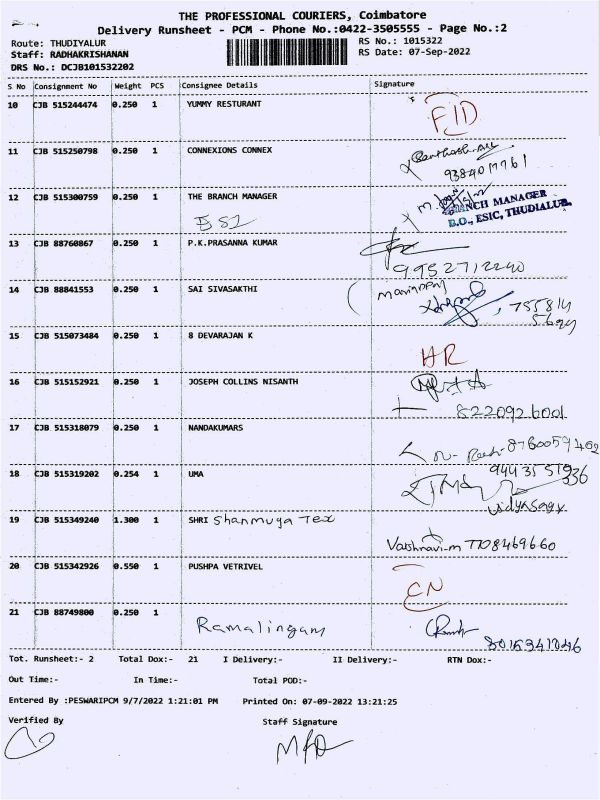 THE PROFESSIONAL COURIERS, Coimbatore
Delivery Runsheet - PCM - Phone No.:0422-3505555 - Page No.:2
Route: THUDIYALUR
RS No.: 1015322
Staff: RADHAKRISHANAN
RS Date: 07-Sep-2022
DRS No.: DCJB101532202
S No Consignment No Weight PCS Consignee Details Signature
10 CJB 515244474 0.250 1 YUMMY RESTURANT FID
11 CJB 515250798 0.250 1 CONNEXIONS CONNEX
9384017761
12 CJB 515300759 0.250 1 THE BRANCH MANAGER
BRANCH MANAGER
B.O., ESIC, THUDIALUR.
ESI
13 CJB 88760867 0.250 1 P.K.PRASANNA KUMAR
9952712240
14 CJB 88841553 0.250 1 SAI SIVASAKTHI
15 CJB 515073484 0.250 1 8 DEVARAJAN K
HR
16 CJB 515152921 0.250 1 JOSEPH COLLINS NISANTH
8220926001
17 CJB 515318079 0.250 1 NANDAKUMARS
18 CJB 515319202 0.254 1 UMA
Vidyasagr
19 CJB 515349240 1.300 1 SHRI Shanmuga Tex
Vaishnavi-m 7708469660
20 CJB 515342926 0.550 1 PUSHPA VETRIVEL
CN
21 CJB 88749800 0.250 1
Ramalingam
Tot. Runsheet:- 2 Total Dox:- 21 I Delivery:- II Delivery:- RTN Dox:-
Out Time:- In Time:- Total POD:-
Entered By :PESWARIPCM 9/7/2022 1:21:01 PM Printed On: 07-09-2022 13:21:25
Verified By Staff Signature